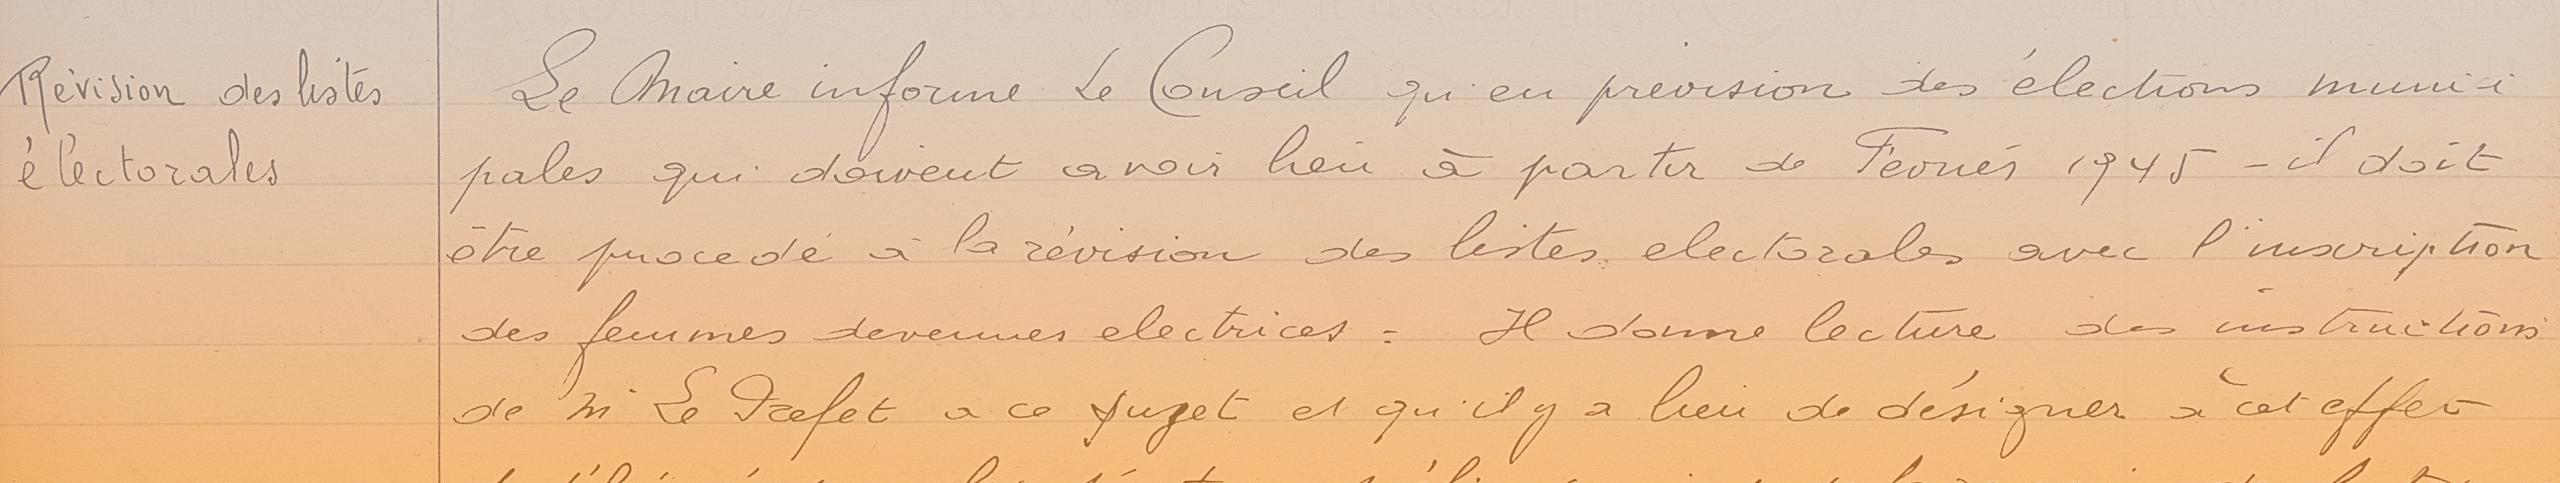 Révision des listes
électorales
Le Maire informe Le Conseil qu'en prévision des élections munici
pales qui doivent avoir lieu à partir de Février 1945 - il doit
être procedé à la révision des listes electorales avec l'inscription
des femmes devenues electrices = Il donne lecture des instructions
de Mr Le Prefet a ce sujet et qu'il y a lieu de désigner à cet effet